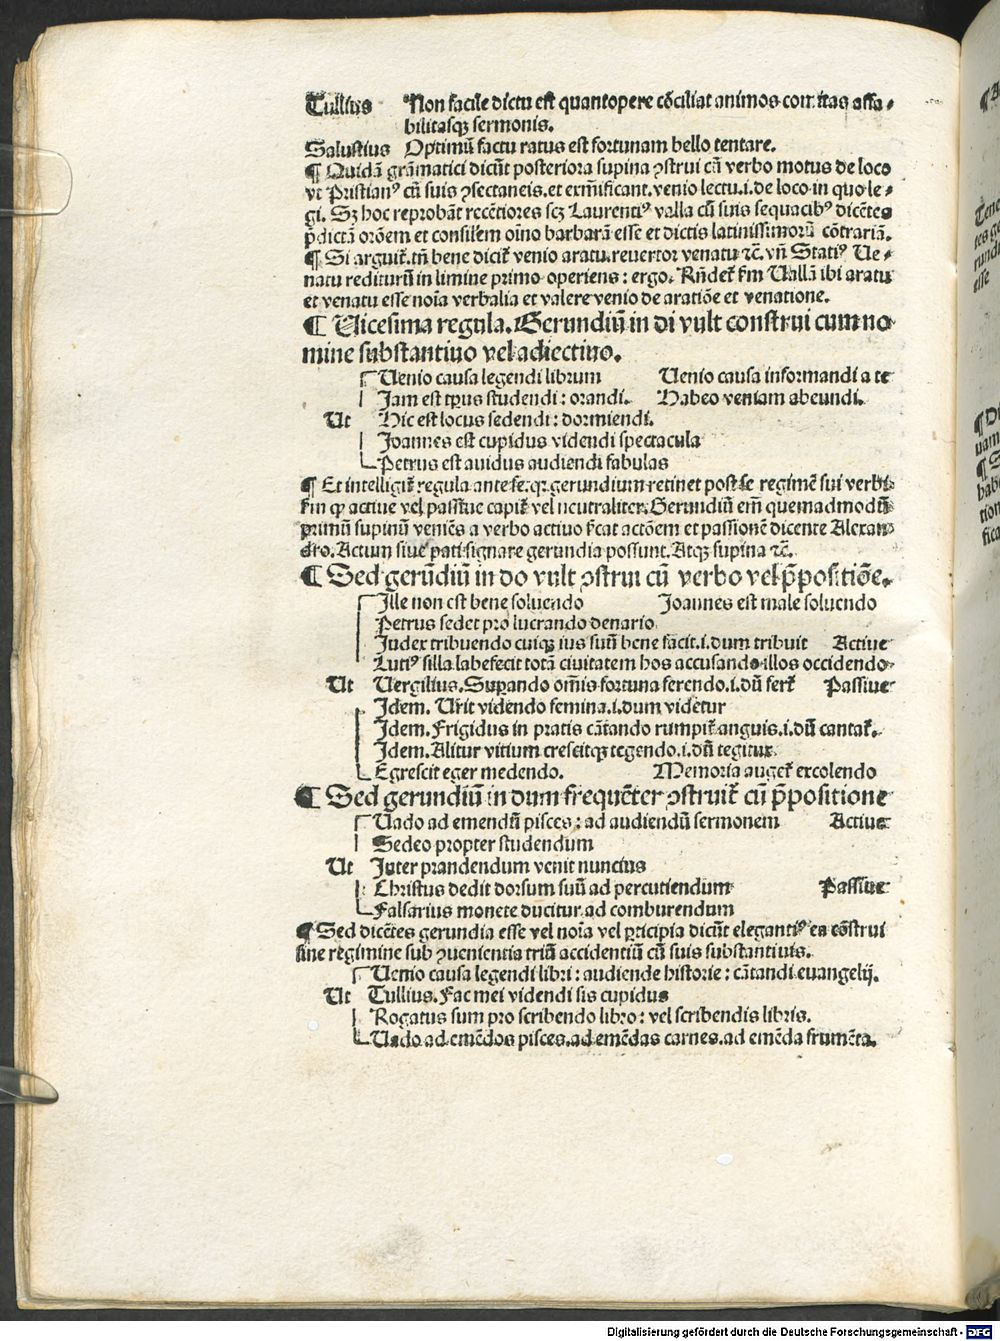 Tullius Non facile dictu est quantopere cōciliat animos comitas affa-
bilitasqꝫ sermonis.
Salustius Optimū factu ratus est fortunam bello tentare.
¶ Quidā grāmatici dicūt posteriora supina ꝯstrui cū verbo motus de loco
vt Pristianꝰ cū suis ꝯsectaneis. et exm̄ificant. venio lectu .i. de loco in quo le-
gi. Sꝫ hoc reprobāt recētiores scꝫ Laurentiꝰ valla cū suis sequacibꝰ dicētes
p̄dictā orōem et consilem oīno barbarā esse et dictis latinissimorū cōtrariā.
¶ Si arguit̄. tn̄ bene dicit̄ venio aratu. revertor venatu ⁊c̄. vn̄ Statiꝰ Ue-
natu rediturū in limine primo operiens : ergo. Rn̄det̄ ẜm Uallā ibi aratu
et venatu esse noīa verbalia et valere venio de aratiōe et venatione.
¶ Vicesima regula. Gerundiū in di vult construi cum no
mine substantiuo vel adiectiuo.
Uenio causa legendi librum Uenio causa informandi a te
Jam est tp̄us studendi : orandi. Habeo veniam abeundi.
Ut Hic est locus sedendi : dormiendi.
Joannes est cupidus videndi spectacula
Petrus est auidus audiendi fabulas
¶ Et intelligit̄ regula ante se. qꝛ gerundium retinet post se regimē sui verbi
ẜm ꝙ actiue vel passiue capit̄ vel neutraliter. Gerundiū em̄ quemadmodū
primū supinū veniēs a verbo actiuo ẜcat actōem et passionē dicente Alexan
dro. Actum siue pati signare gerundia possunt. Atqꝫ supina ⁊c̄.
¶ Sed gerūdiū in do vult ꝯstrui cū verbo vel p̄positiōe.
Jlle non est bene soluendo Joannes est male soluendo
Petrus sedet pro lucrando denario
Judex tribuendo cuiqꝫ ius suū bene facit .i. dum tribuit Actiue
Lutiꝰ silla labefecit totā ciuitatem hos accusando illos occidendo
Ut Vergilius. Supando om̄is fortuna ferendo .i. dū fert̄ Passiue
Jdem. Urit videndo femina .i. dum videtur
Jdem. Frigidus in pratis cātando rumpit̄ anguis .i. dū cantat̄.
Jdem. Alitur vitium crescitqꝫ tegendo .i. dū tegitur
Egrescit eger medendo. Memoria auget̄ excolendo
¶ Sed gerundiū in dum frequēter ꝯstruit̄ cū p̄positione
Uado ad emendū pisces : ad audiendū sermonem Actiue
Sedeo propter studendum
Ut Jnter prandendum venit nuncius
Christus dedit dorsum suū ad percutiendum Passiue
Falsarius monete ducitur ad comburendum
¶ Sed dicētes gerundia esse vel noīa vel ꝑticipia dicūt elegantiꝰ ea cōstrui
sine regimine sub ꝯuenientia triū accidentiū cū suis substantiuis.
Uenio causa legendi libri : audiende historie : cātandi euangelij.
Ut Tullius. Fac mei videndi sis cupidus
Rogatus sum pro scribendo libro : vel scribendis libris.
Uado ad emēdos pisces. ad emēdas carnes. ad emēda frumēta.
Digitalisierung gefördert durch die Deutsche Forschungsgemeinschaft - DFG